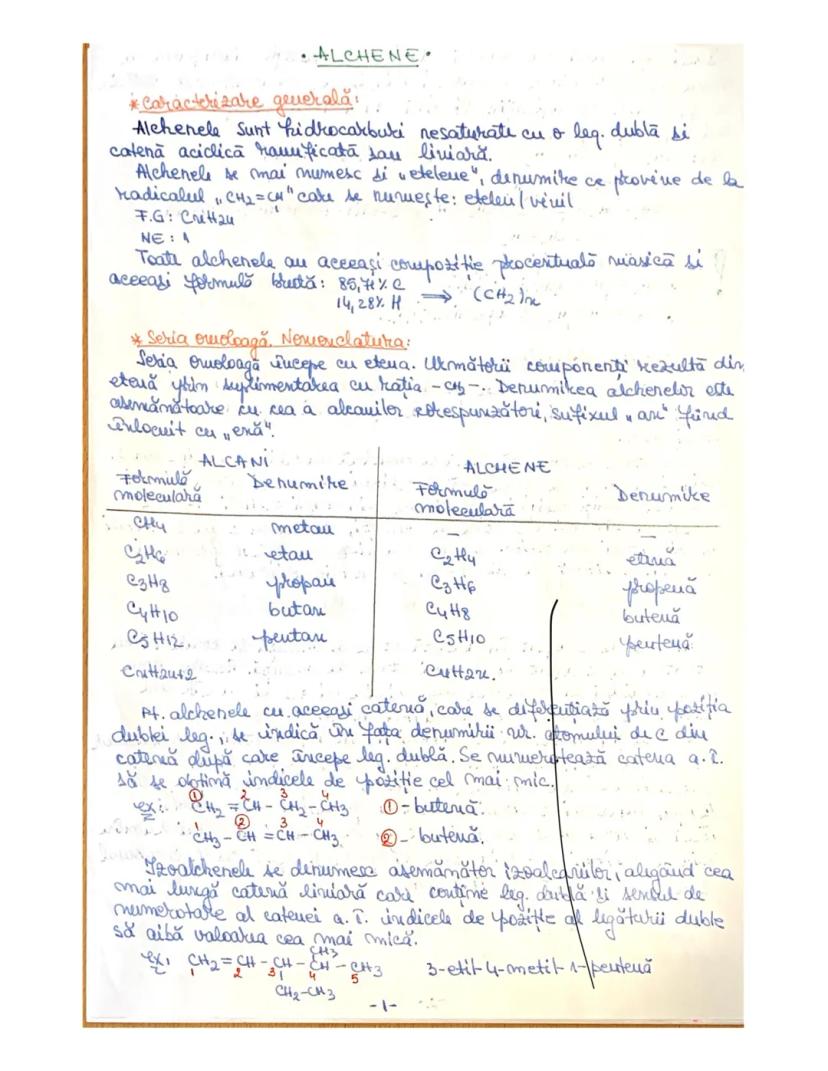 • ALCHENE •
* Caracterizare generală:
Alchenele sunt hidrocarburi nesaturate cu o leg. dublă și
catenă aciclică ramificată sau liniară.
Alchenele se mai numesc și "etelene", denumire ce provine de la
radicalul "CH2=CH" care se numește: etelen/vinil
F.G: CnH2n
NE: 1
Toate alchenele au aceeași compoziție procentuală masică și
aceeași formulă brută: 85,71% C
14,28% H ⟹ (CH2)n
* Seria omoloagă. Nomenclatura:
Seria omoloagă începe cu etena. Următorii componenți rezultă din
etenă prin suplimentarea cu rația -CH2-. Denumirea alchenelor este
asemănătoare cu cea a alcanilor corespunzători, sufixul "an" fiind
înlocuit cu "enă".
ALCANI ALCHENE
Formulă moleculară Denumire Formulă moleculară Denumire
CH4 metan – –
C2H6 etan C2H4 etenă
C3H8 propan C3H6 propenă
C4H10 butan C4H8 butenă
C5H12 pentan C5H10 pentenă
CnH2n+2 CnH2n.
Pt. alchenele cu aceeași catenă, care se diferențiază prin poziția
dublei leg., se indică în fața denumirii nr. atomului de C din
catenă după care începe leg. dublă. Se numerotează catena a. î.
să se obțină indicele de poziție cel mai mic.
ex: ① 2 3 4
CH2 = CH - CH2 - CH3 ① - butenă.
1 ② 3 4
CH3 - CH = CH - CH3 ② - butenă.
Izoalchenele se denumesc asemănător izoalcanilor, alegând cea
mai lungă catenă liniară care conține leg. dublă și sensul de
numerotare al catenei a. î. indicele de poziție al legăturii duble
să aibă valoarea cea mai mică.
CH3
ex: CH2 = CH - CH - CH - CH3 3-etil-4-metil-1-pentenă
1 2 3 4 5
CH2-CH3
-1-